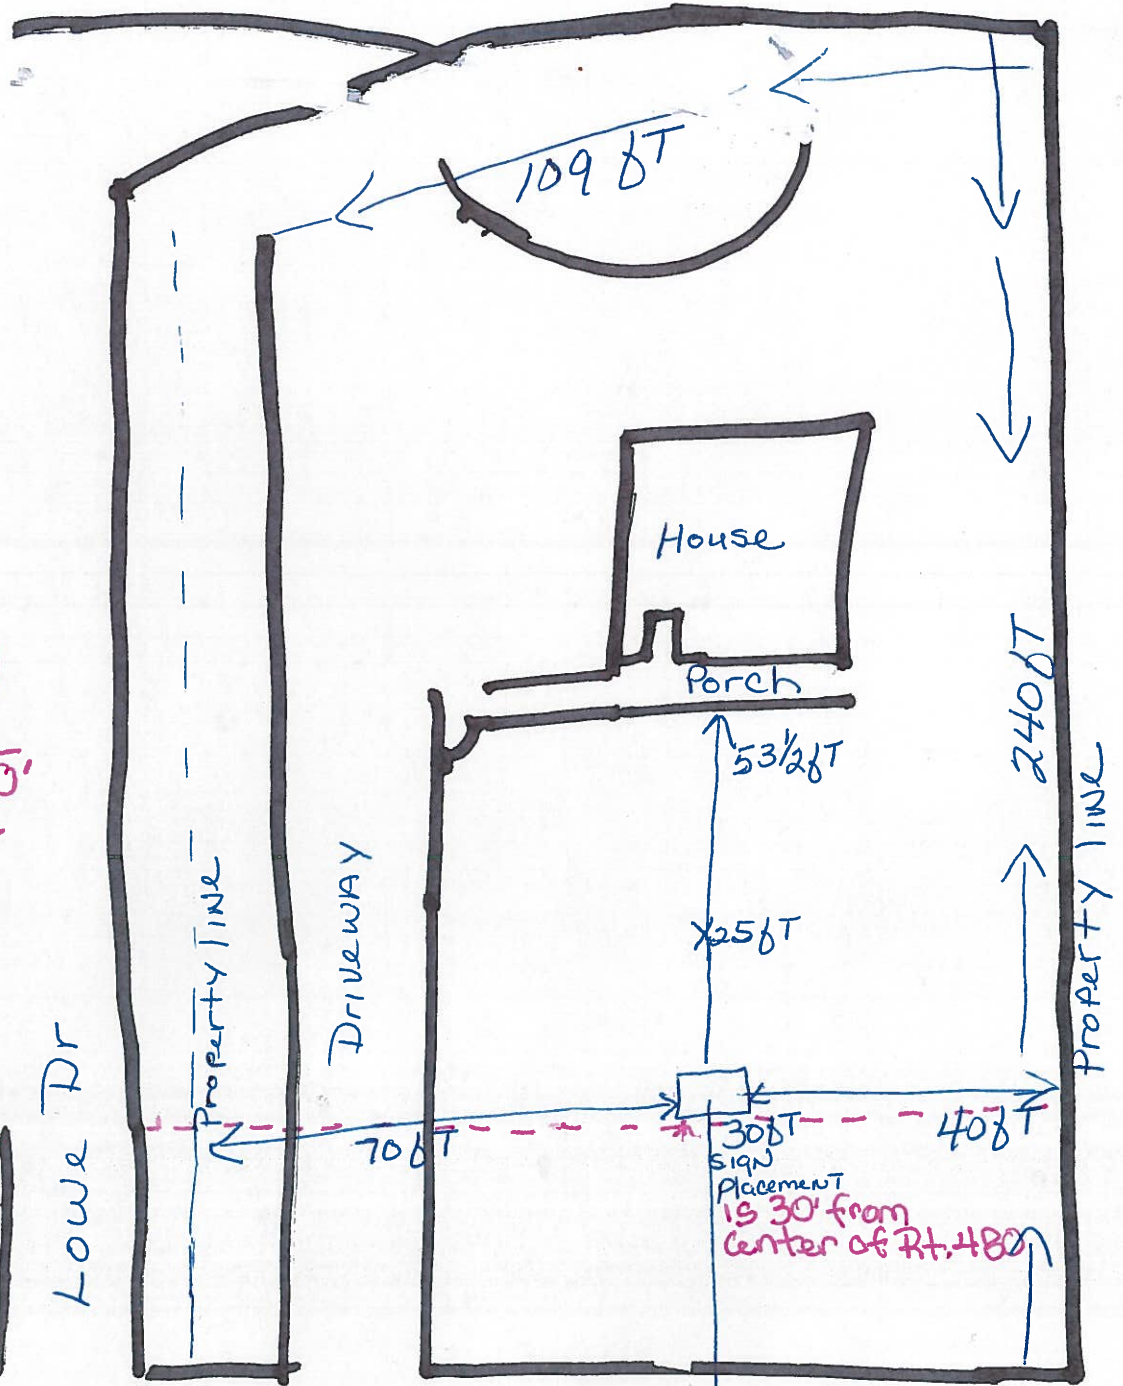 109 fT
House
Porch
53 1/2 fT
240 fT
Property line
25 fT
Driveway
Property line
Lowe Dr
70 fT
30 fT
40 fT
SIGN
Placement
is 30' from
center of Rt. 480